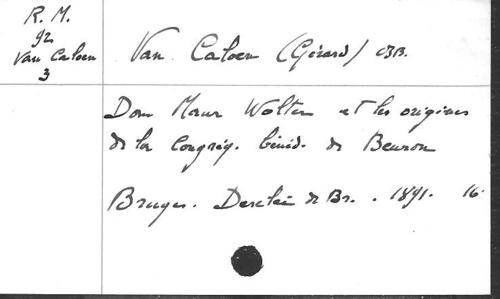 R. M.
92
Van Caloen
3
Van Caloen (Gérard) OSB.
Dom Maur Wolter et les origines
de la Congrég. bénéd. de Beuron
Bruges. Desclée de Br. . 1891. 16